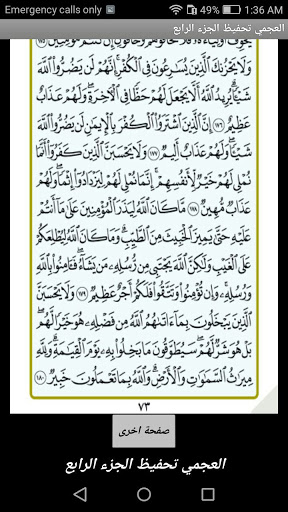 Emergency calls only 1:36 AM
العجمي تحفيظ الجزء الرابع
يُخَوِّفُ أَوْلِيَآءَهُۥ فَلَا تَخَافُوهُمْ وَخَافُونِ إِن كُنتُم مُّؤْمِنِينَ ١٧٥
وَلَا يَحْزُنكَ ٱلَّذِينَ يُسَٰرِعُونَ فِى ٱلْكُفْرِ ۚ إِنَّهُمْ لَن يَضُرُّوا۟ ٱللَّهَ
شَيْـًٔا ۗ يُرِيدُ ٱللَّهُ أَلَّا يَجْعَلَ لَهُمْ حَظًّا فِى ٱلْـَٔاخِرَةِ ۖ وَلَهُمْ عَذَابٌ
عَظِيمٌ ١٧٦ إِنَّ ٱلَّذِينَ ٱشْتَرَوُا۟ ٱلْكُفْرَ بِٱلْإِيمَٰنِ لَن يَضُرُّوا۟ ٱللَّهَ
شَيْـًٔا وَلَهُمْ عَذَابٌ أَلِيمٌ ١٧٧ وَلَا يَحْسَبَنَّ ٱلَّذِينَ كَفَرُوٓا۟ أَنَّمَا
نُمْلِى لَهُمْ خَيْرٌ لِّأَنفُسِهِمْ ۚ إِنَّمَا نُمْلِى لَهُمْ لِيَزْدَادُوٓا۟ إِثْمًا ۚ وَلَهُمْ
عَذَابٌ مُّهِينٌ ١٧٨ مَّا كَانَ ٱللَّهُ لِيَذَرَ ٱلْمُؤْمِنِينَ عَلَىٰ مَآ أَنتُمْ
عَلَيْهِ حَتَّىٰ يَمِيزَ ٱلْخَبِيثَ مِنَ ٱلطَّيِّبِ ۗ وَمَا كَانَ ٱللَّهُ لِيُطْلِعَكُمْ
عَلَى ٱلْغَيْبِ وَلَٰكِنَّ ٱللَّهَ يَجْتَبِى مِن رُّسُلِهِۦ مَن يَشَآءُ ۖ فَـَٔامِنُوا۟ بِٱللَّهِ
وَرُسُلِهِۦ ۚ وَإِن تُؤْمِنُوا۟ وَتَتَّقُوا۟ فَلَكُمْ أَجْرٌ عَظِيمٌ ١٧٩ وَلَا يَحْسَبَنَّ
ٱلَّذِينَ يَبْخَلُونَ بِمَآ ءَاتَىٰهُمُ ٱللَّهُ مِن فَضْلِهِۦ هُوَ خَيْرًا لَّهُم ۖ
بَلْ هُوَ شَرٌّ لَّهُمْ ۖ سَيُطَوَّقُونَ مَا بَخِلُوا۟ بِهِۦ يَوْمَ ٱلْقِيَٰمَةِ ۗ وَلِلَّهِ
مِيرَٰثُ ٱلسَّمَٰوَٰتِ وَٱلْأَرْضِ ۗ وَٱللَّهُ بِمَا تَعْمَلُونَ خَبِيرٌ ١٨٠
٧٣
صفحة اخرى
العجمي تحفيظ الجزء الرابع